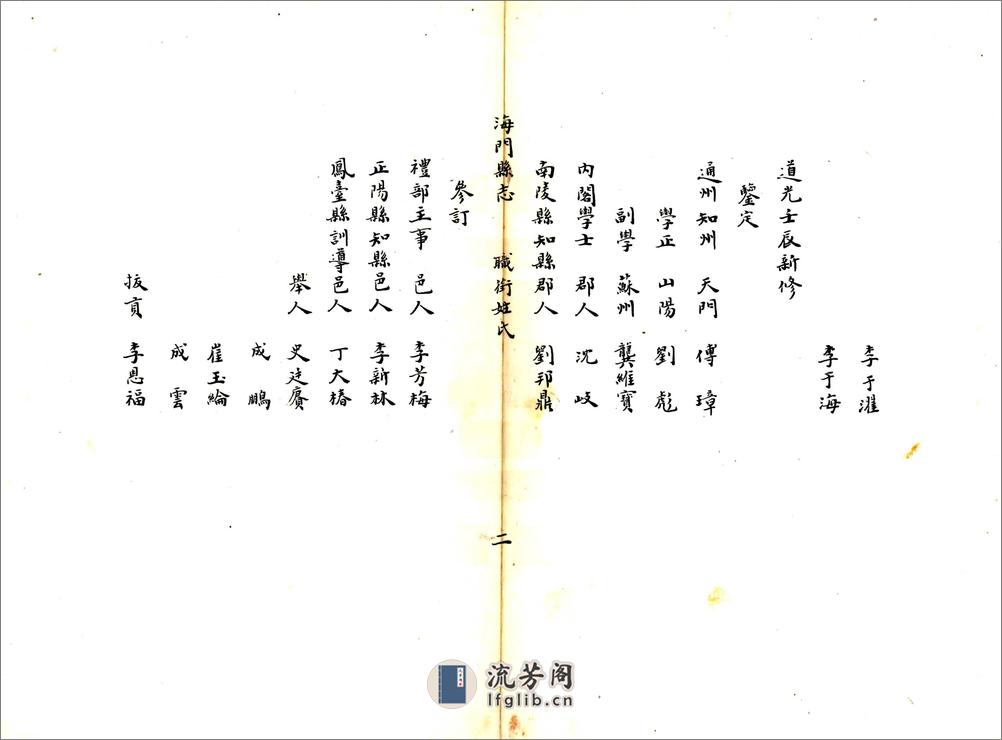 李于濯
李于海
道光壬辰新修
鑒定
通州知州 天門 傅璋
學正 山陽 劉彪
副學 蘇州 龔維寶
內閣學士 郡人 沈岐
南陵縣知縣郡人 劉邦鼎
海門縣志 職銜姓氏 二
參訂
禮部主事 邑人 李芳梅
正陽縣知縣邑人 李新林
鳳臺縣訓導邑人 丁大椿
舉人 史廷賡
成鵬
崔玉綸
成雲
拔貢 李恩福
流芳阁
lfglib.cn